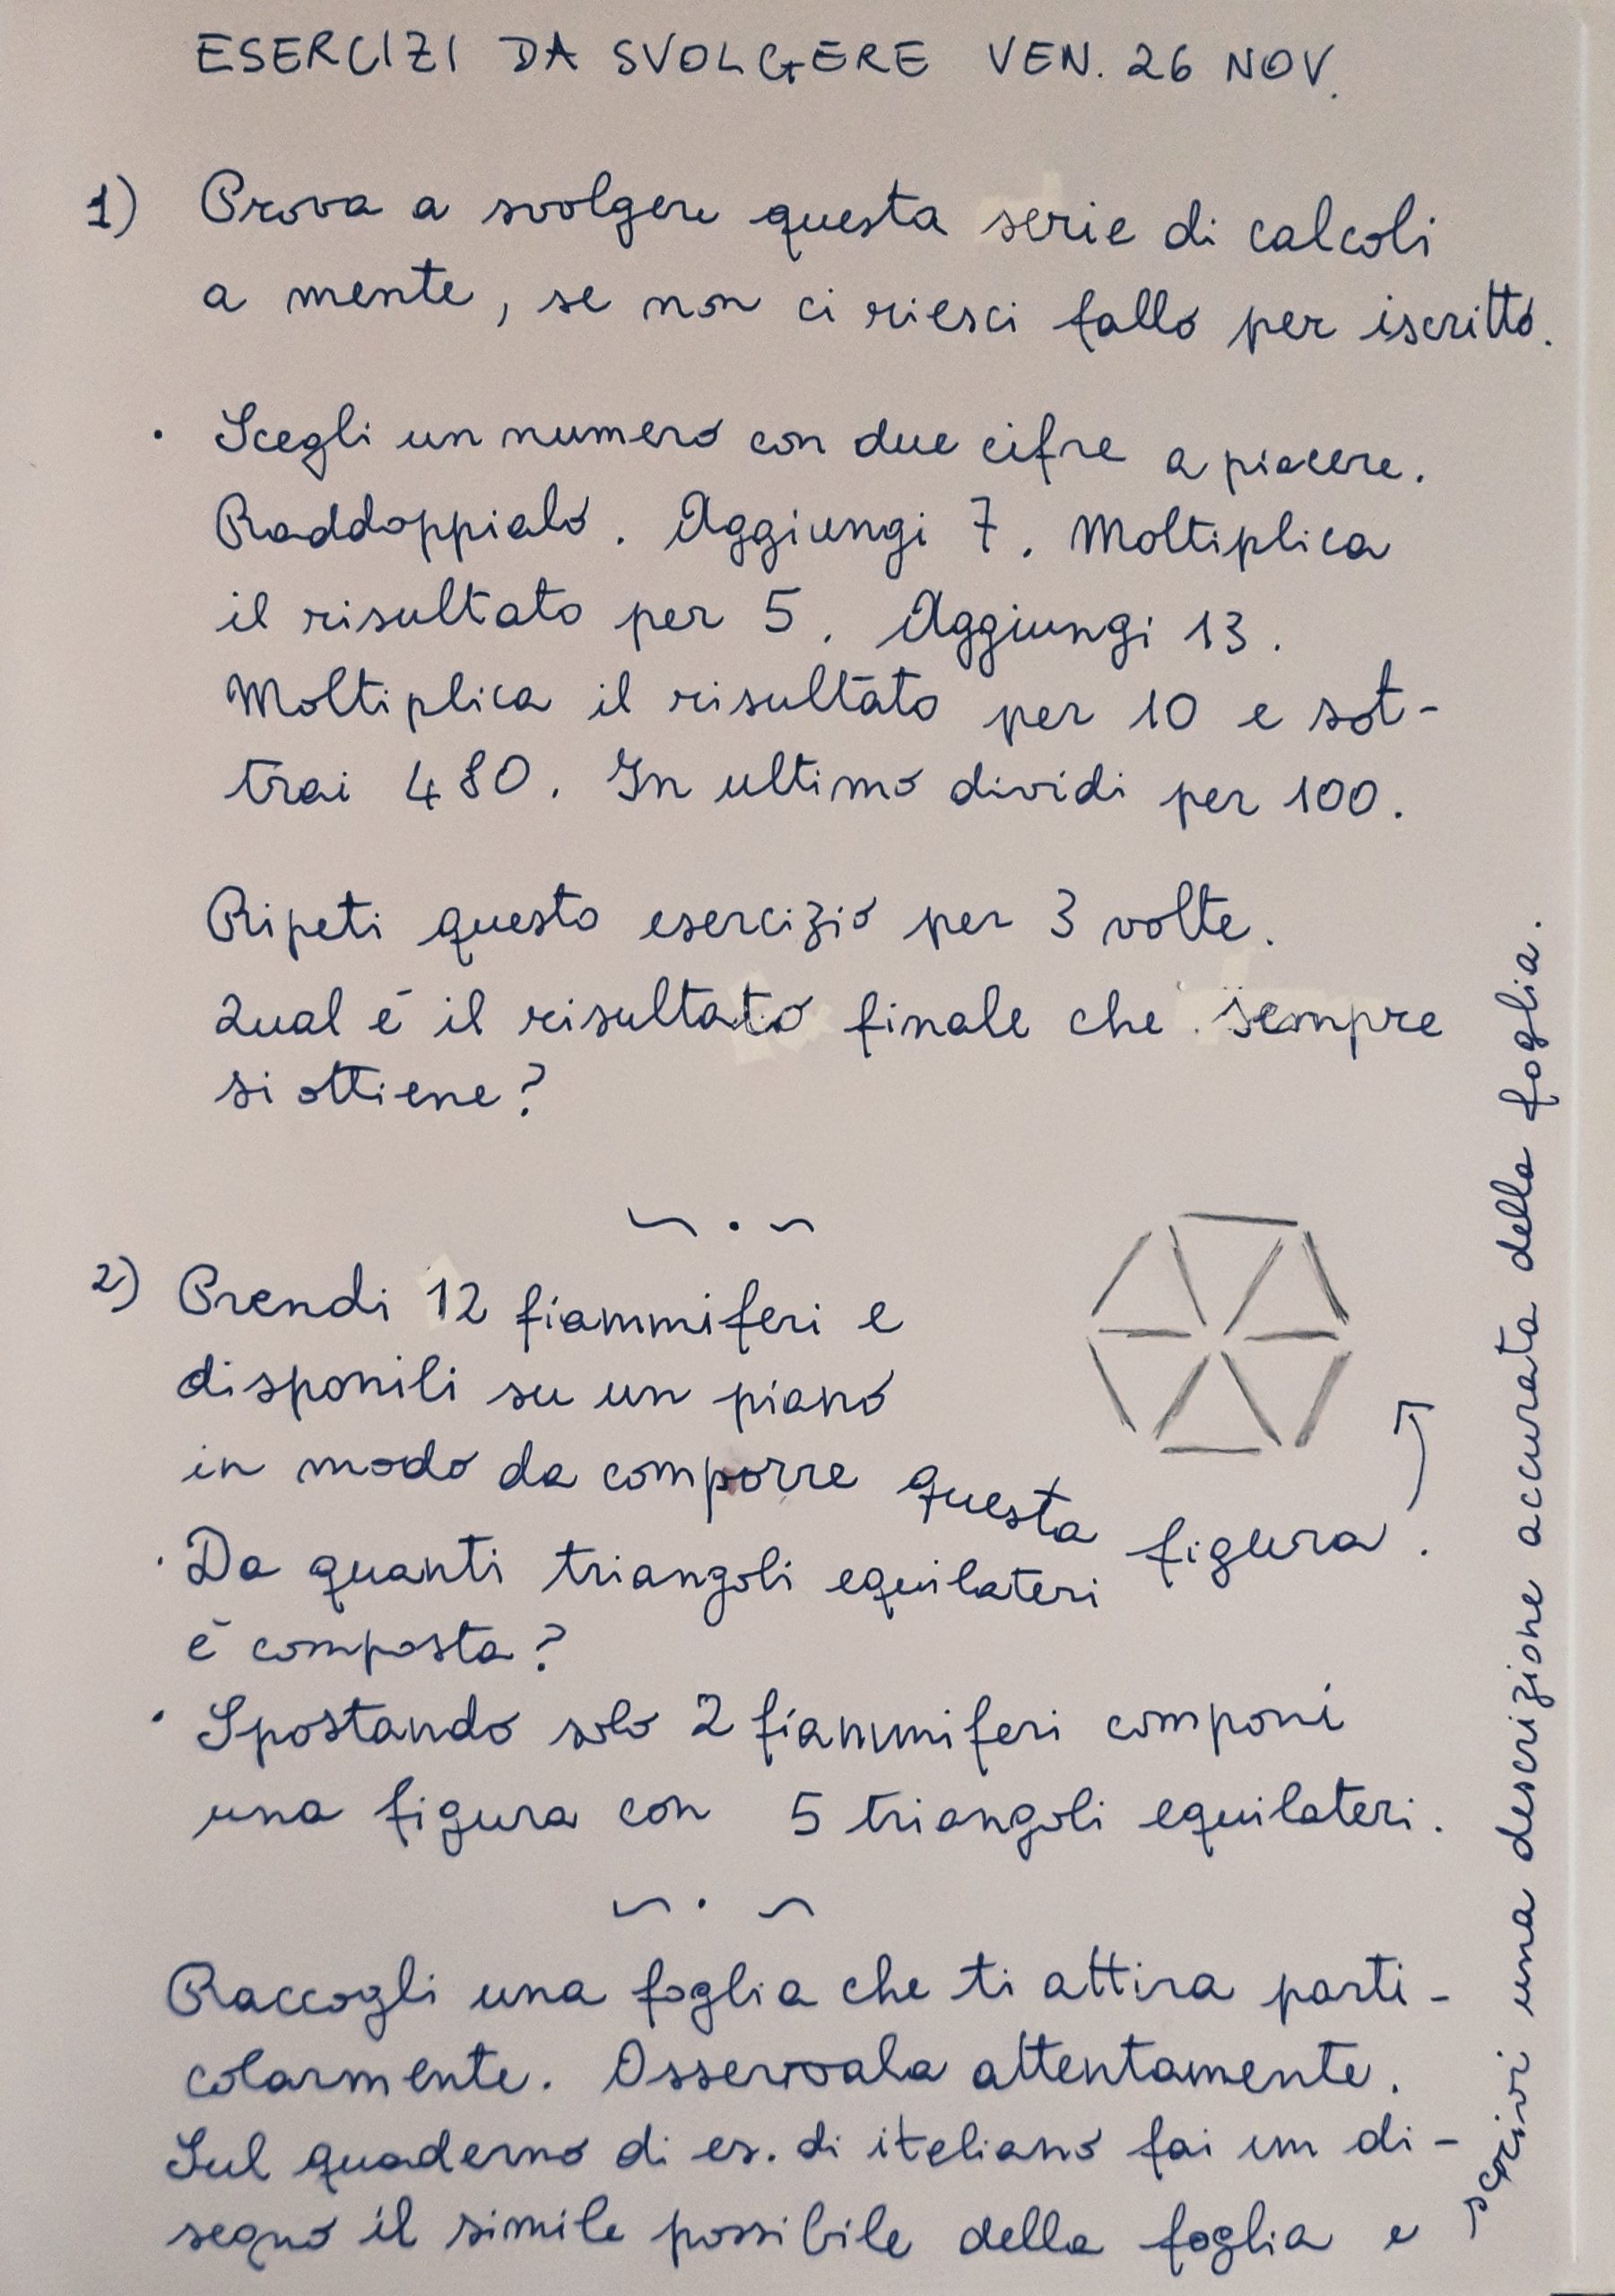 ESERCIZI DA SVOLGERE VEN. 26 NOV.
1) Prova a svolgere questa serie di calcoli
a mente, se non ci riesci fallo per iscritto.
· Scegli un numero con due cifre a piacere.
Raddoppialo. Aggiungi 7. Moltiplica
il risultato per 5. Aggiungi 13.
Moltiplica il risultato per 10 e sot-
trai 480. In ultimo dividi per 100.
Ripeti questo esercizio per 3 volte.
Qual è il risultato finale che sempre
si ottiene?
2) Prendi 12 fiammiferi e
disponili su un piano
in modo da comporre questa figura.
· Da quanti triangoli equilateri
è composta?
· Spostando solo 2 fiammiferi componi
una figura con 5 triangoli equilateri.
Raccogli una foglia che ti attira parti-
colarmente. Osservala attentamente.
Sul quaderno di es. di italiano fai un di-
segno il simile possibile della foglia e
scrivi una descrizione accurata della foglia.